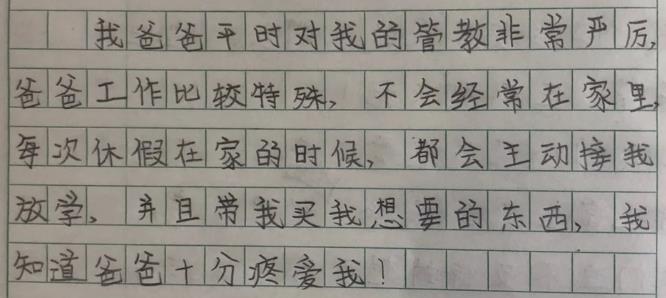 我爸爸平时对我的管教非常严厉,
爸爸工作比较特殊,不会经常在家里,
每次休假在家的时候,都会主动接我
放学,并且带我买我想要的东西,我
知道爸爸十分疼爱我!